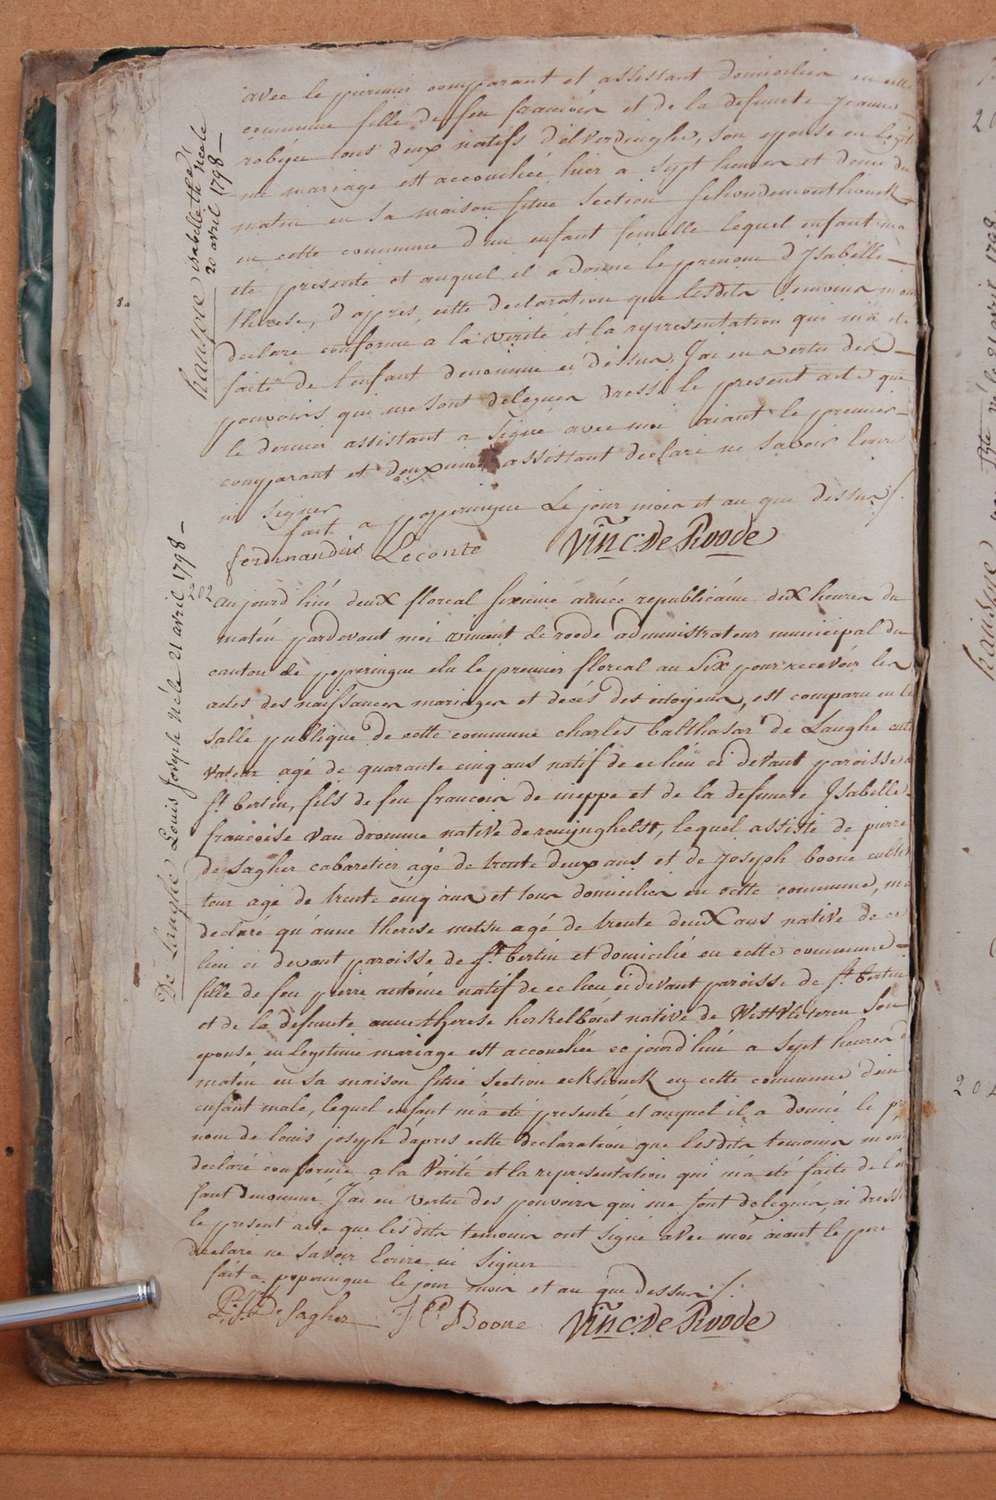 avec le premier comparant et assistant domicilier en cette
commune fille de feu francois et de la defunte Jeanne
tous deux natifs d'elverdinghe, son epouse en legiti
me mariage est accouchée hier a sept heures et demie du
matin en sa maison située section schoudemonthouck
en cette commune d'un enfant femelle lequel enfant m'a
eté presenté et auquel il a donné le prenom d'Ysabelle
therese, d'apres cette declaration que lesdits temoins m'ont
declaré conforme a la verité et la representation qui m'a eté
faite de l'enfant denommé ci dessus, J'ai en vertu des
pouvoirs qui me sont deleguer dressé le present acte que
le dernier assistant a signé avec moi aiant le premier
comparant et deuxieme assistant declaré ne savoir Ecrire
ni signer
fait a poperingue Le jour mois et an que dessus /.
ferdinandus Leconte Vinc. De Roode
haussoie isabelle therese née le
20 avril 1798
202
aujourd'hui deux floreal sixieme année republicaine dix heures du
matin pardevant moi vincent de roode administrateur municipal du
canton de poperingue elu le premier floreal an six pour recevoir les
actes des naissances mariages et decès des citoyens, est comparu en la
salle publique de cette commune charles balthasar de Langhe culti
vateur agé de quarante cinq ans natif de ce lieu ci devant paroisse de
st. bertin, fils de feu francois de meppe et de la defunte Ysabelle
francoise van dromme native de reninghelst, lequel assisté de pierre
de sagher cabaretier agé de trente deux ans et de Joseph boone culti
teur agé de trente cinq ans et tous domicilier en cette commune, m'a
declaré qu'anne therese metsu agé de trente deux ans native de ce
lieu ci devant paroisse de st. bertin et domicilié en cette commune
fille de feu pierre antoine natif de ce lieu ci devant paroisse de st. bertin
et de la defunte anne therese herkelbout native de Westvleteren son
epouse en legitime mariage est accouchée ce jourd'hui a sept heures du
matin en sa maison située section eekhouck en cette commune d'un
enfant male, lequel enfant m'a eté presenté et auquel il a donné le pre
nom de louis joseph d'apres cette declaration que lesdits temoins m'ont
declaré conforme a la Verité et la representation qui m'a eté faite de l'en
fant denommé, J'ai en vertu des pouvoirs qui me sont deleguer, ai dressé
le present acte que lesdits temoins ont signé avec moi aiant le pere
declaré ne savoir Ecrire ni signer
fait a poperingue le jour mois et an que dessus /.
De Sagher Boone Vinc. De Roode
De Langhe Louis Joseph né le 21 avril 1798